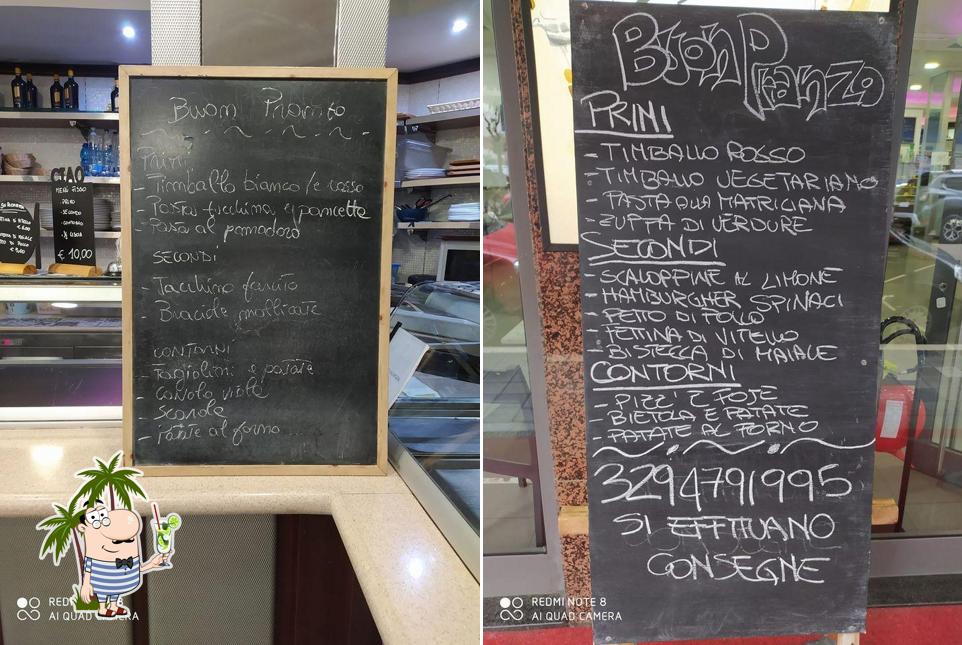 Buon Pranzo
Primi
- Timballo bianco /e rosso
- Pasta zucchina e pancetta
- Pasta al pomodoro
SECONDI
- Tacchino farcito
- Braciole mollicate
CONTORNI
- Fagiolini e patate
- Cavolo viola
- Scarola
- Patate al forno
CIAO
MENÙ FISSO
€ 10,00
REDMI NOTE 8
AI QUAD CAMERA
BUON PRANZO
PRINI
- TIMBALLO ROSSO
- TIMBALLO VEGETARIANO
- PASTA ALLA MATRICIANA
- ZUPPA DI VERDURE
SECONDI
- SCALOPPINE AL LIMONE
- HAMBURGHER SPINACI
- PETTO DI POLLO
- FETTINA DI VITELLO
- BISTECCA DI MAIALE
CONTORNI
- PIZZ' E FOJE
- BIETOLA E PATATE
- PATATE AL FORNO
3294791995
SI EFFTUANO
CONSEGNE
REDMI NOTE 8
AI QUAD CAMERA